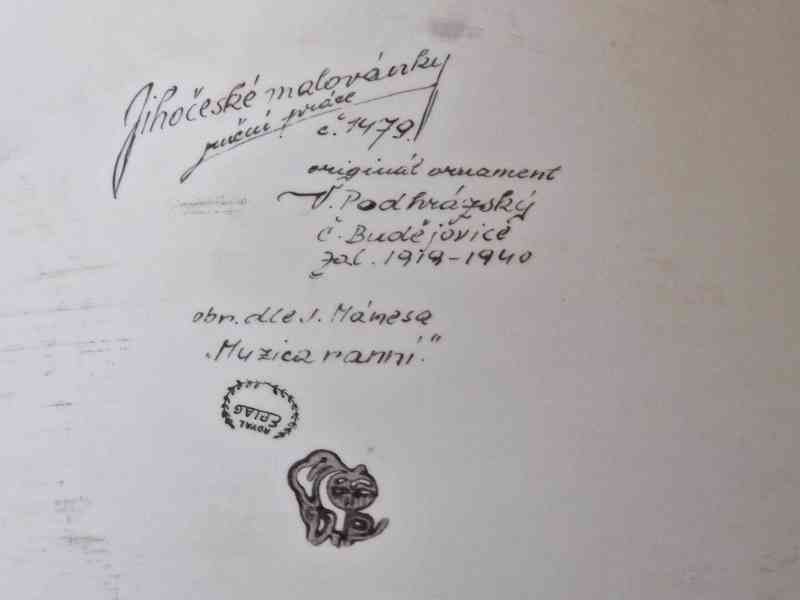 Jihočeské malovánky
ruční práce
č. 1479.
originál ornament
V. Podhrázský
č. Budějovicé
zal. 1919-1940
obr. dle J. Mánesa
„Muzica ranní."
ROYAL
EPIAG